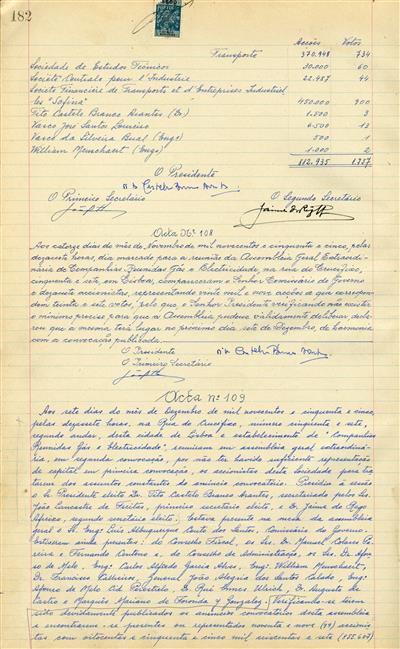 182
Acções Votos
Transporte 370.948 734
Sociedade de Estudos Técnicos 30.000 60
Société Centrale pour l'Industrie 22.487 44
Société Financière de Transports et d'Entreprises Industriel
les "Sofina" 450.000 900
Tito Castelo Branco Arantes (Dr.) 1.500 3
Vasco José Santos Loureiro 6.500 13
Vasco da Silveira (Engº) 500 1
William Meuschaert (Engº) 1.000 2
O Presidente
O Primeiro Secretário O Segundo Secretário
Acta Nº 108
Aos catorze dias do mês de Novembro de mil novecentos e cinquenta e cinco, pelas
dezasseis horas, dia marcado para a reunião da Assembleia Geral Extraordi-
nária de Companhias Reunidas Gás e Electricidade, na rua do Crucifixo,
cinquenta e sete, em Lisboa, compareceram o Senhor Comissário do Governo
e dezasete accionistas, representando vinte mil e nove acções a que correspon-
dem trinta e sete votos, pelo que o Senhor Presidente verificando não existir
o mínimo preciso para que a Assembleia pudesse validamente deliberar decla-
rou que a mesma terá lugar no próximo dia sete de Dezembro, de harmonia
com a convocação publicada.
O Presidente
O Primeiro Secretário
Acta nº 109
Aos sete dias do mês de Dezembro de mil novecentos e cinquenta e cinco,
pelas dezassete horas, na Rua do Crucifixo, número cinquenta e sete,
segundo andar, desta cidade de Lisboa e estabelecimento de "Companhias
Reunidas Gás e Electricidade", reuniram em assembleia geral extraordiná-
ria, em segunda convocação, por não ter havido suficiente representação
de capital em primeira convocação, os accionistas desta Sociedade para tra-
tarem dos assuntos constantes do anúncio convocatório. Presidiu à sessão
o Presidente eleito Dr. Tito Castelo Branco Arantes, secretariado pelos Srs.
João Lancastre de Freitas, primeiro secretário eleito, e Dr. Jaime do Rego
Afreixo, segundo secretário eleito. Esteve presente na mesa da assembleia
geral o Sr. Engº Luís Albuquerque Couto dos Santos, Comissário do Governo.
Estiveram ainda presentes: do Conselho Fiscal, os Srs. Dr. Manuel
e Fernando e, do Conselho de Administração, os Srs. Dr. Afon-
so de Melo, Engº Carlos Alfredo Garcia Alves, Engº William Meuschaert,
Dr. Francisco Calheiros, General João Alegria dos Santos Calado, Engº
Afonso de Melo Cid Perestrelo, Dr. Rui Ennes Ulrich, Dr. Augusto de
Castro e Marquês Mariano de Foronda y Gonzalez. Verificando-se terem
sido devidamente publicados os anúncios convocatórios desta assembleia
e encontrarem-se presentes ou representados noventa e nove (99) accionis-
tas, com oitocentas e cinquenta e cinco mil seiscentas e sete (855.607)